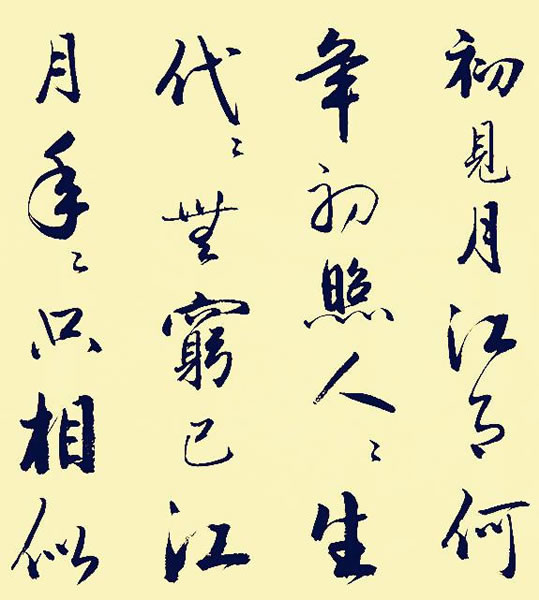 初見月江月何
年初照人〻生
代〻無窮已江
月年〻只相似